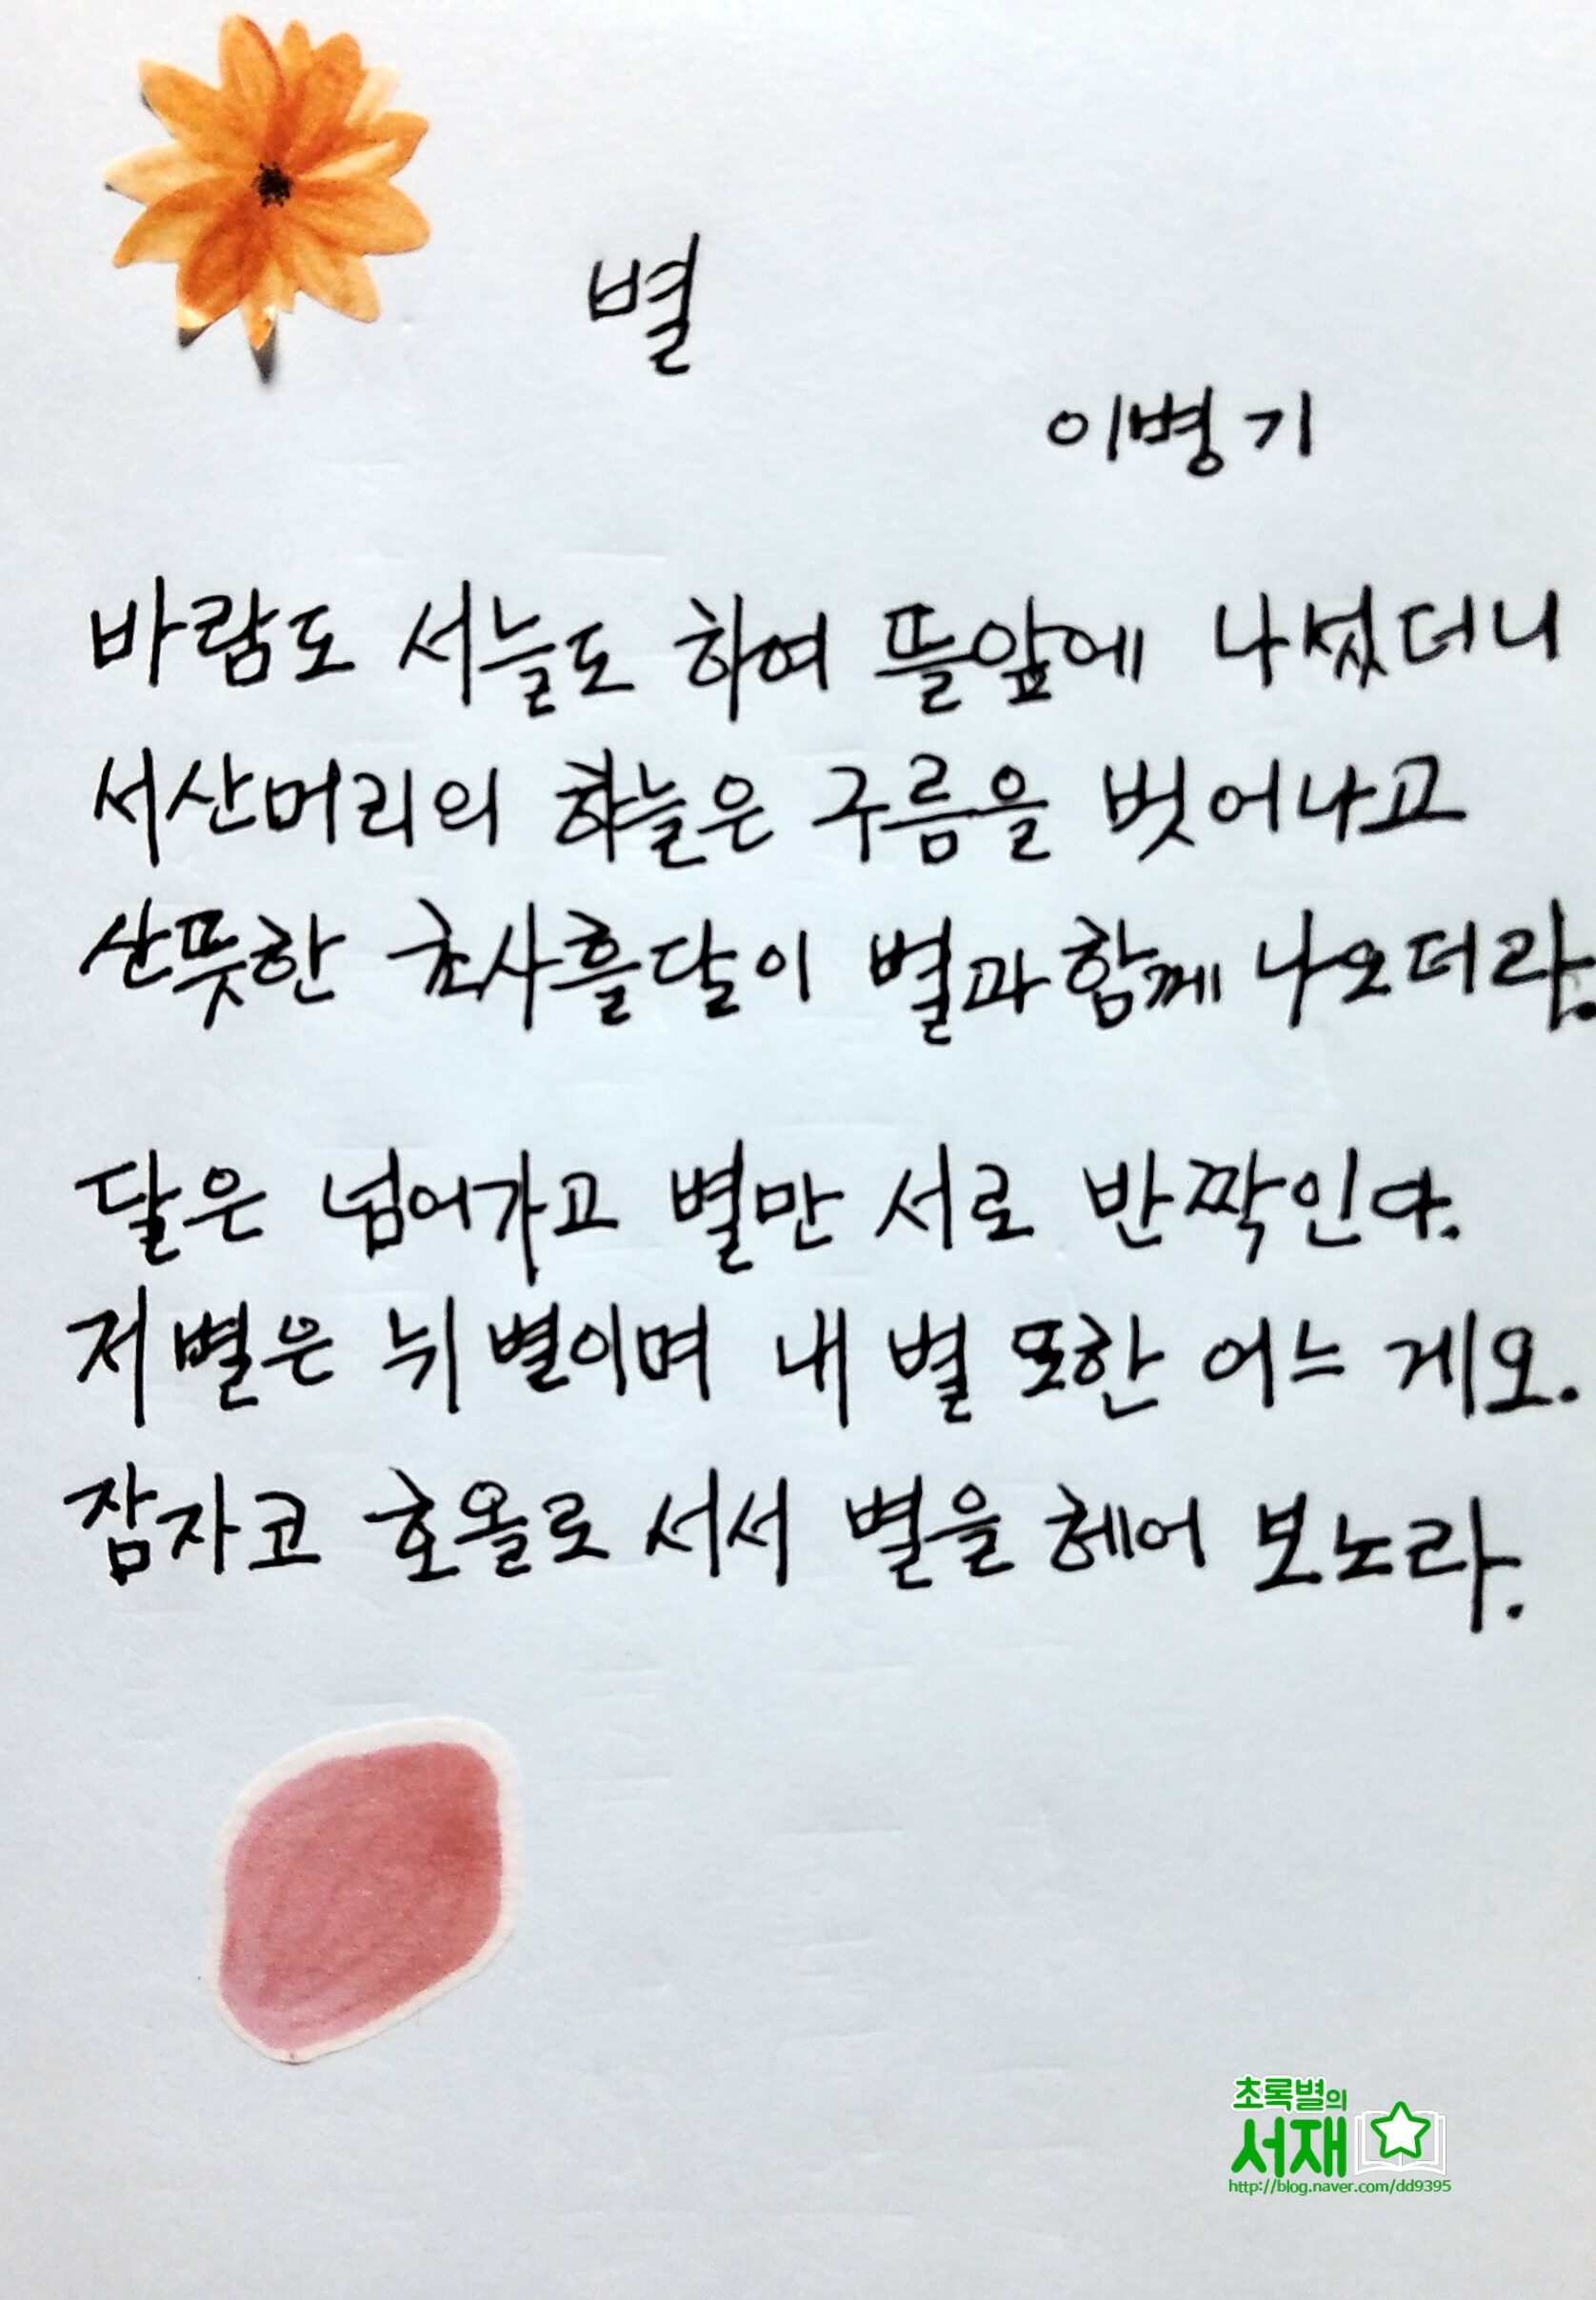 별
이병기
바람도 서늘도 하여 뜰앞에 나섰더니
서산머리의 하늘은 구름을 벗어나고
산뜻한 초사흘달이 별과 함께 나오더라.
달은 넘어가고 별만 서로 반짝인다.
저 별은 뉘 별이며 내 별 또한 어느 게오.
잠자코 호올로 서서 별을 헤어 보노라.
초록별의
서재
http://blog.naver.com/dd9395